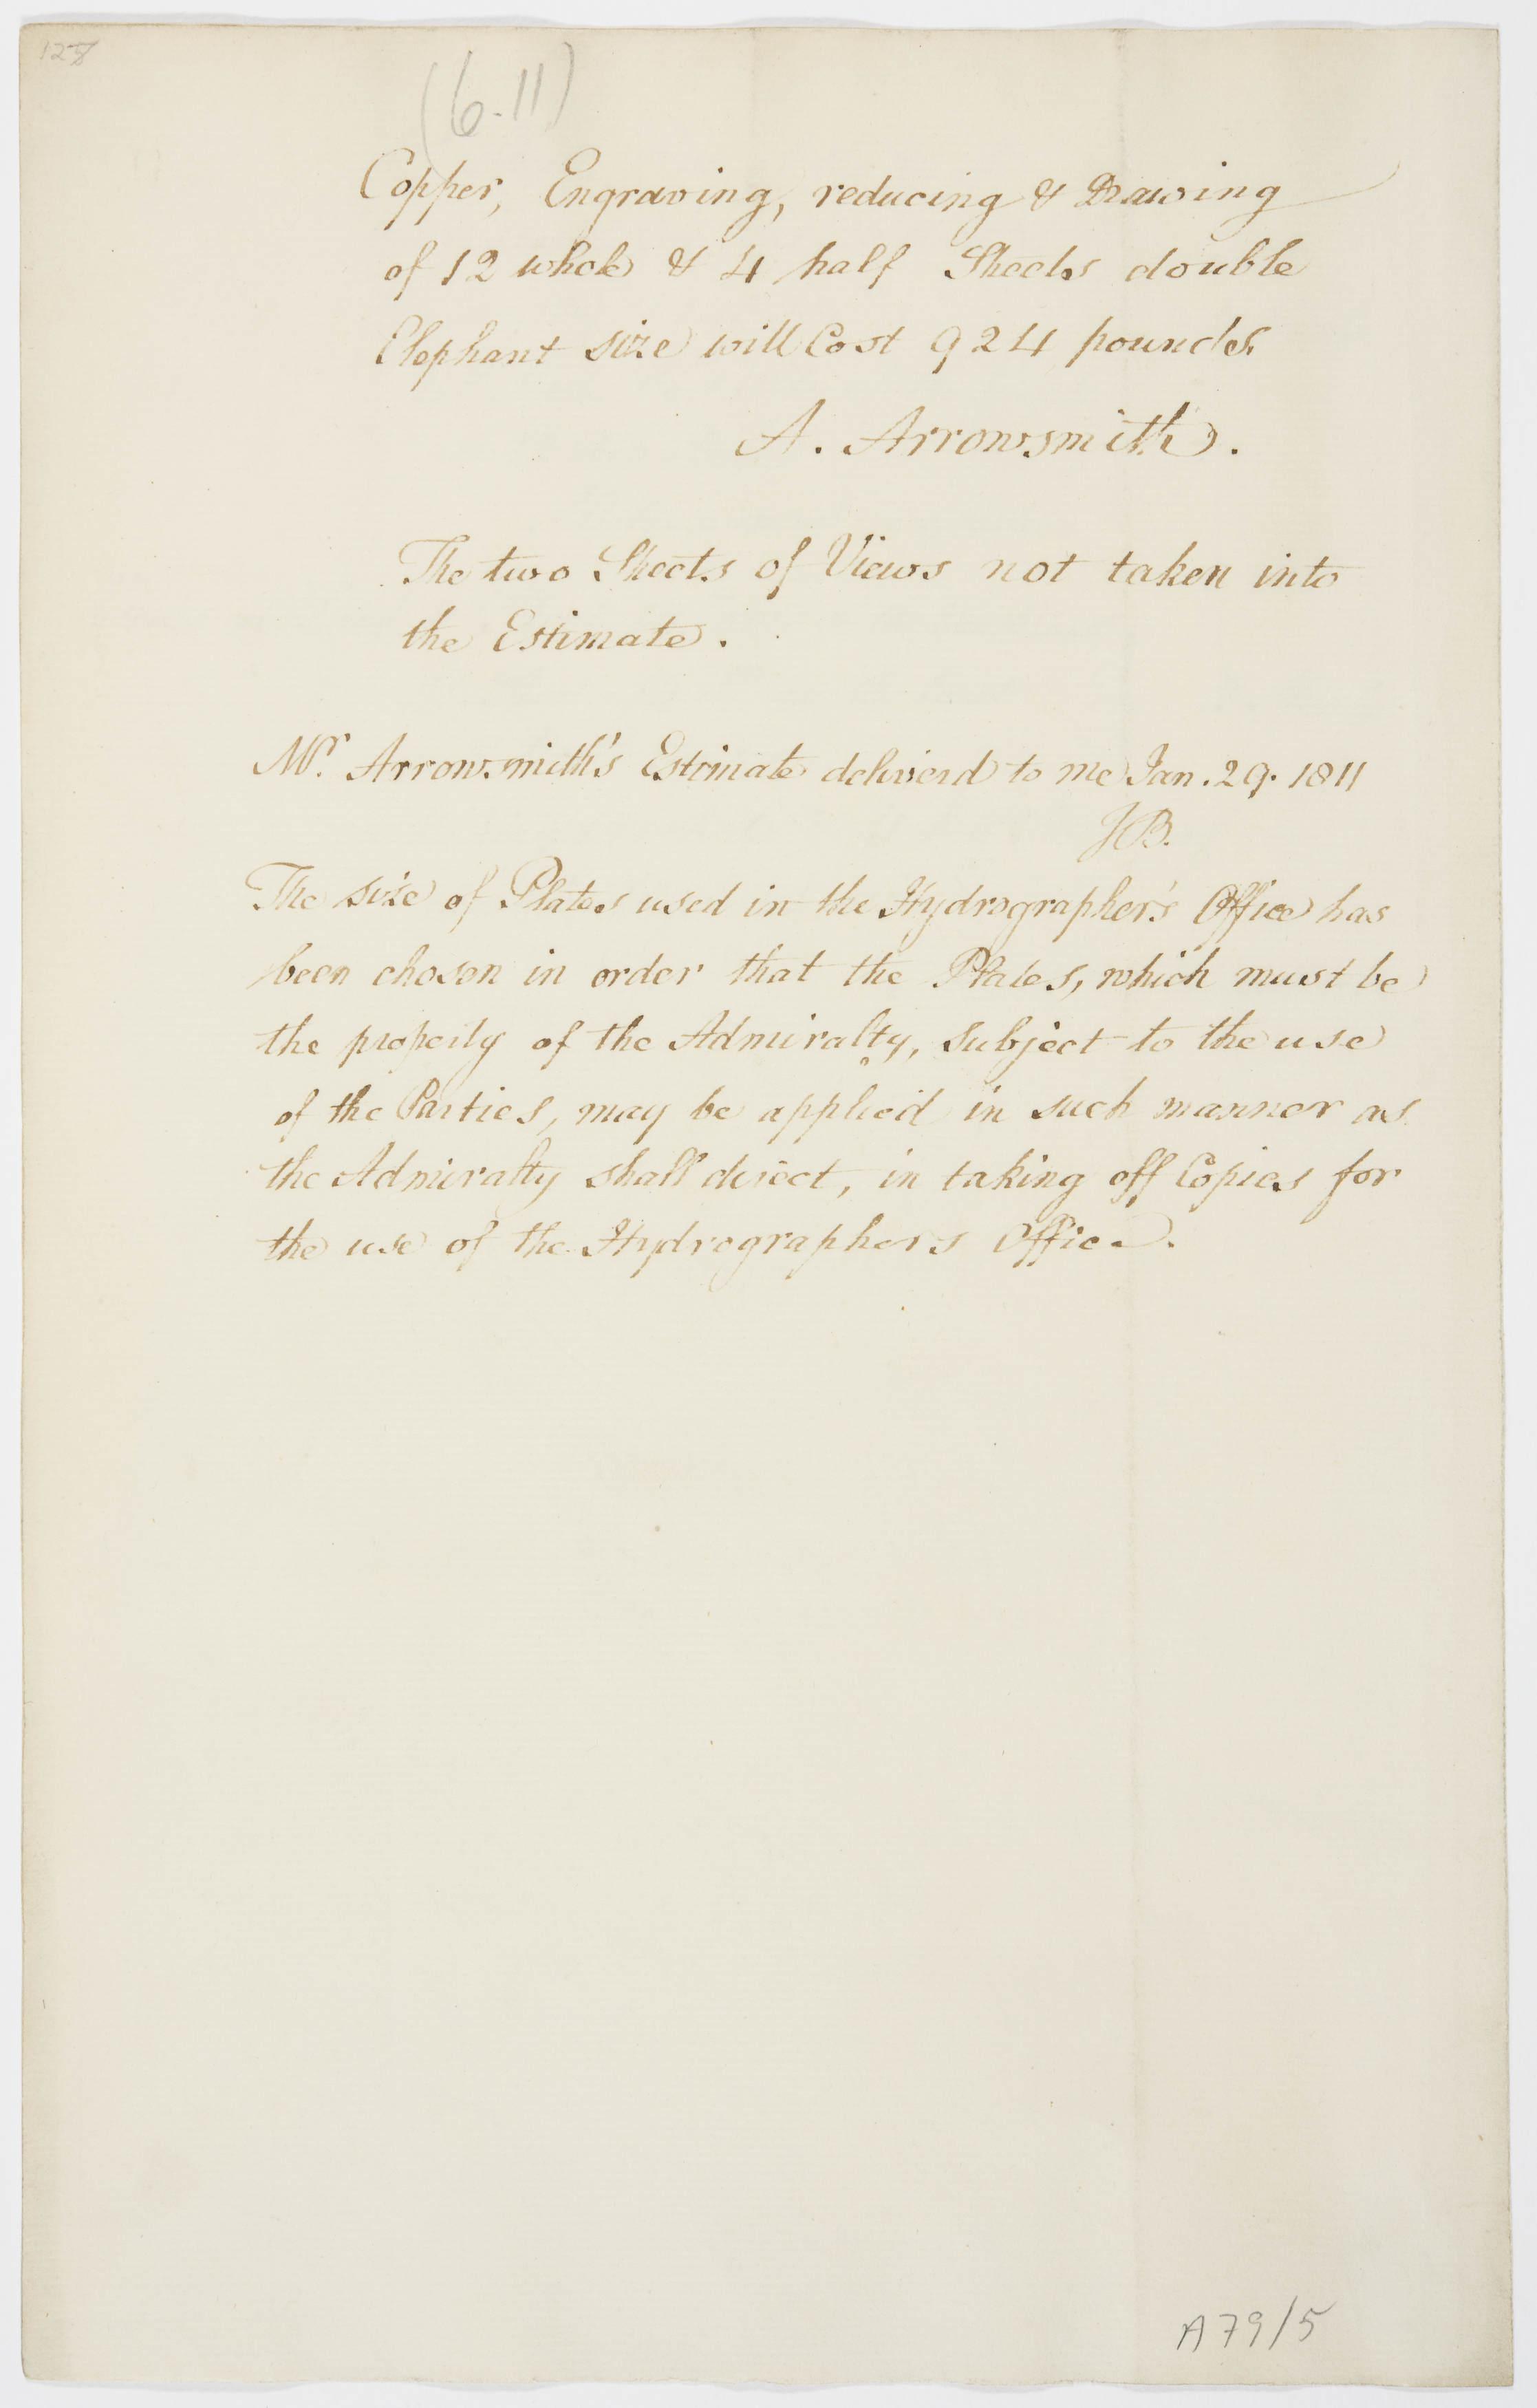 (6.11)
Copper, Engraving, reducing & Drawing
of 12 whole & 4 half Sheets double
Elephant size will Cost 924 pounds
A. Arrowsmith.
The two Sheets of Views not taken into
the Estimate.
Mr. Arrowsmith's Estimate deliverd to me Jan. 29. 1811
JB.
The size of Plates used in the Hydrographer's Office has
been chosen in order that the Plates, which must be
the property of the Admiralty, subject to the use
of the Parties, may be applied in such manner as
the Admiralty shall direct, in taking off Copies for
the use of the Hydrographers Office.
A79/5